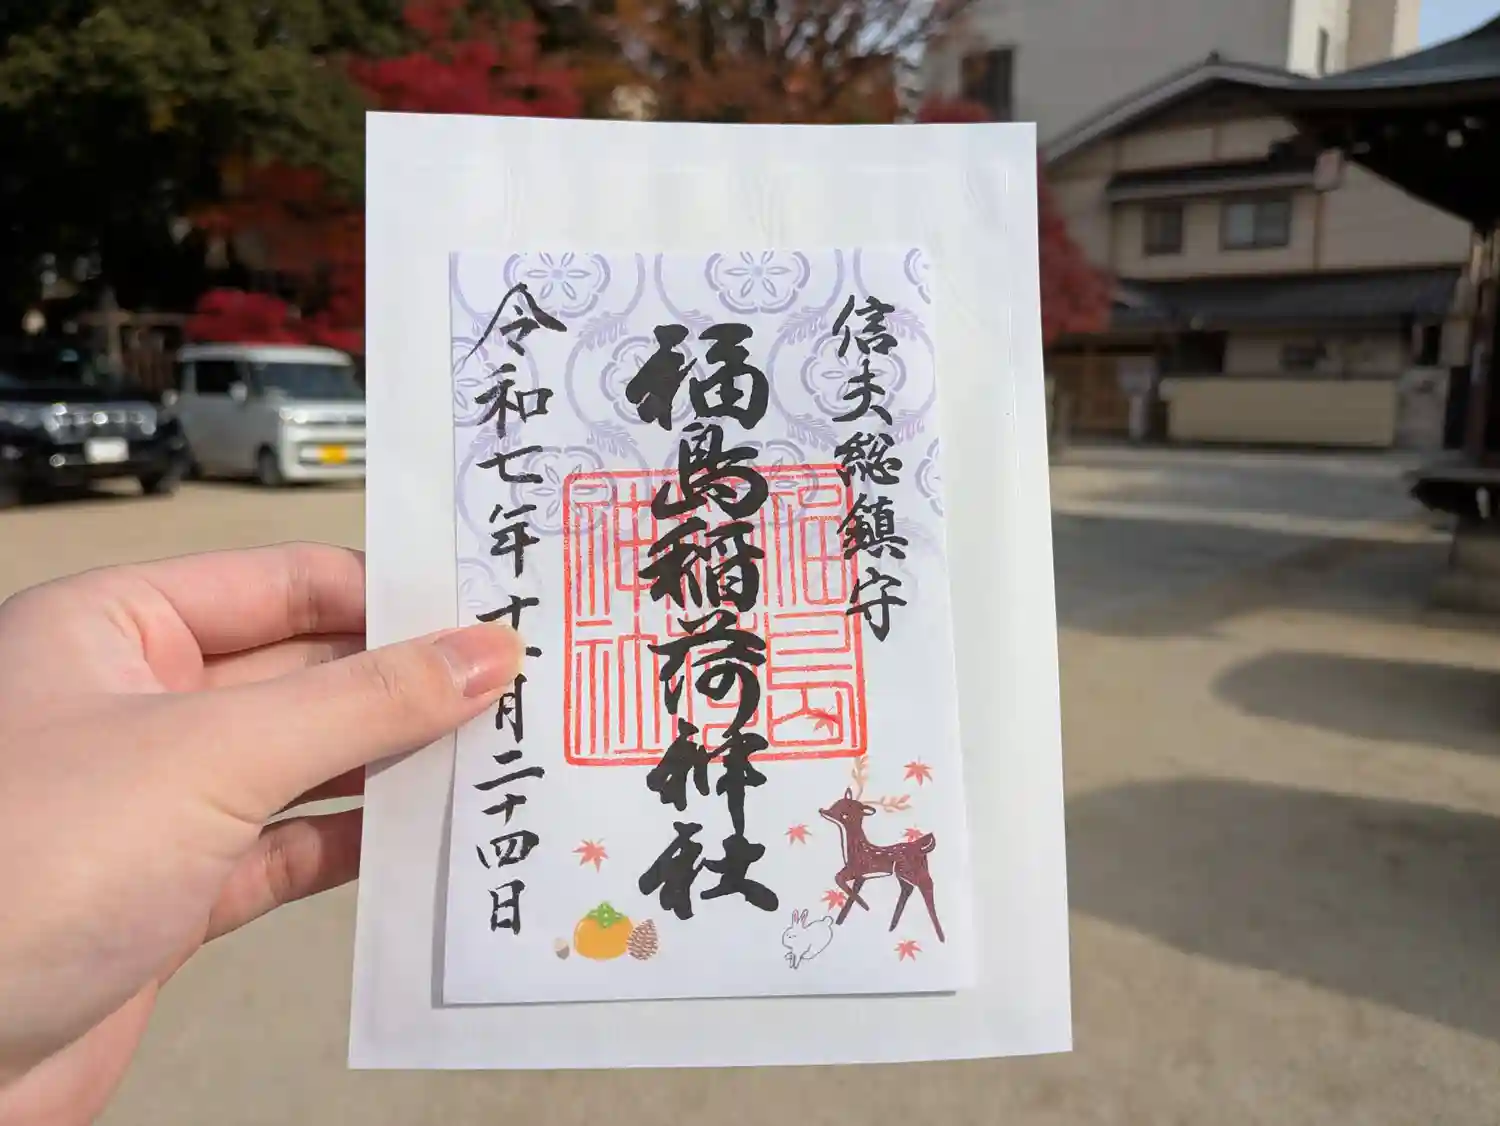 信夫総鎮守
福島稲荷神社
福島稲荷神社
令和七年十一月二十四日